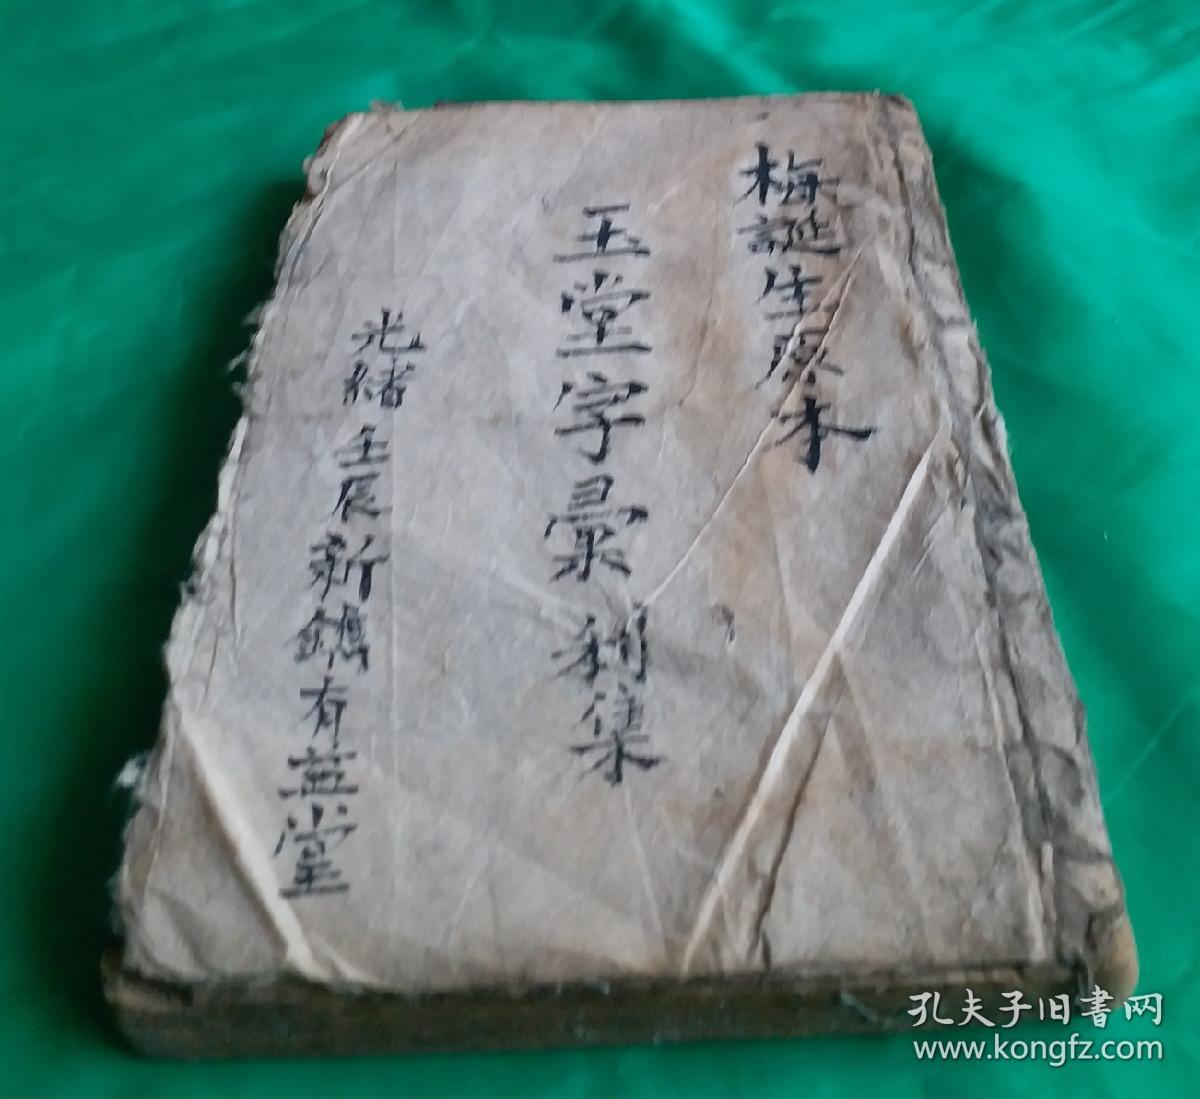 梅誕生原本
玉堂字彙 利集
光緒壬辰新鐫有益堂
孔夫子旧書网
www.kongfz.com